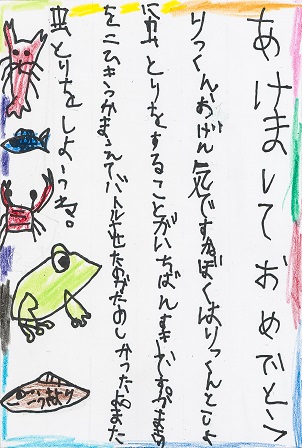 あけましておめでとう
りっくんおげん気ですか。ぼくはりっくんといっしょ
に虫とりをすることがいちばんすきです。かまきり
を二ひきつかまえてバトルさせたのがたのしかったね。また
虫とりをしようね。